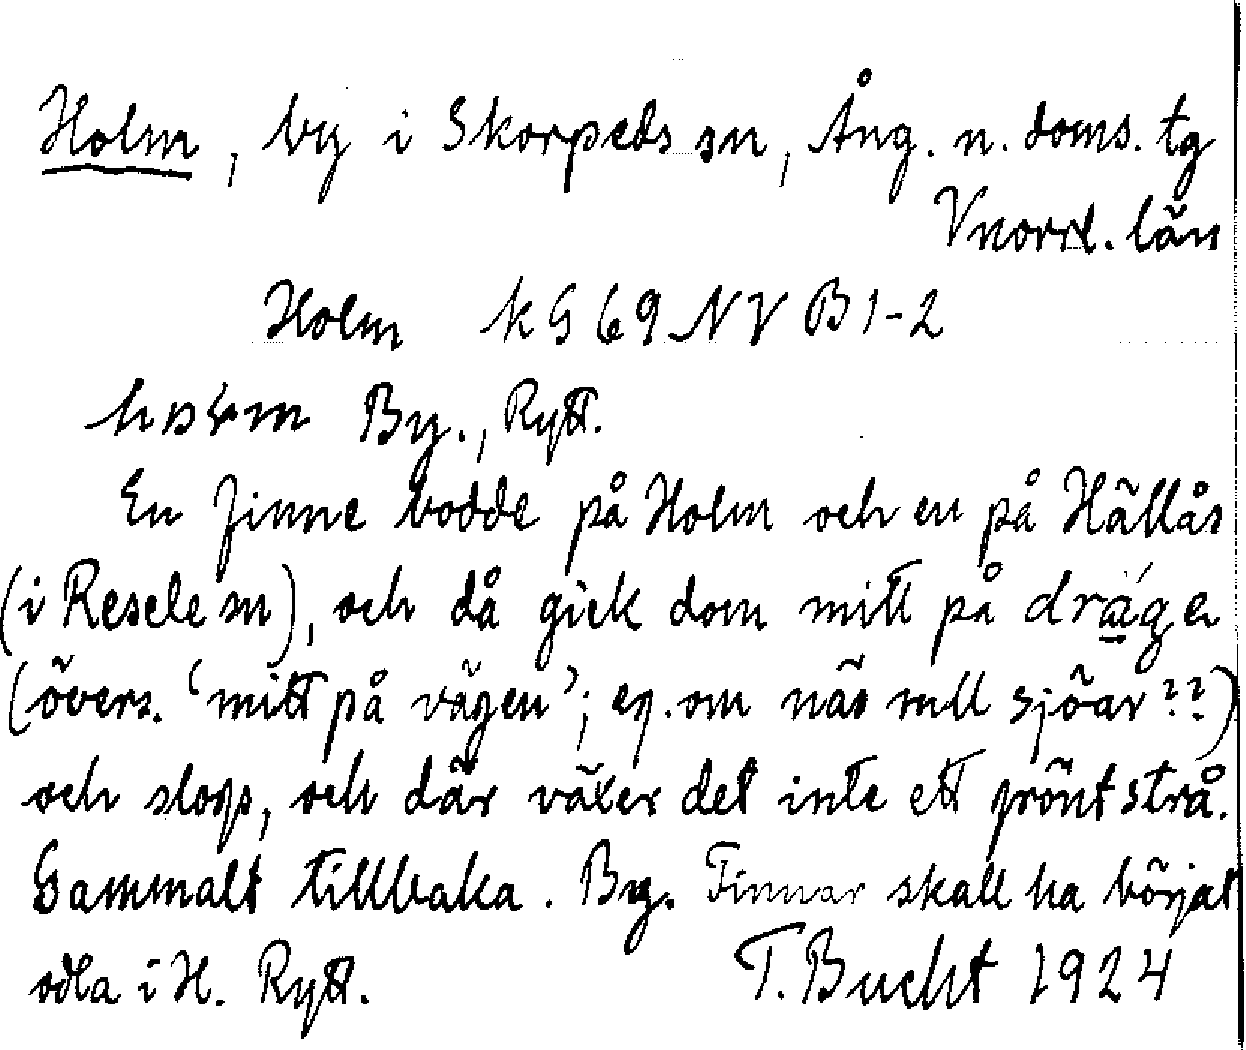 Holm, by i Skorpeds sn, Ång. n. doms. tg
Vnorrl. län
Holm kG 69 NV B 1-2
By., Rytt.
En finne bodde på Holm och en på Hällås
(i Resele sn), och då gick dom mitt på drágen
(övers. 'mitt på vägen'; eg. om näs mll sjöar??)
och slogs, och där växer det inte ett grönt strå.
Gammalt tillbaka. By. Finnar skall ha börjat
odla i H. Rytt. T. Bucht 1924